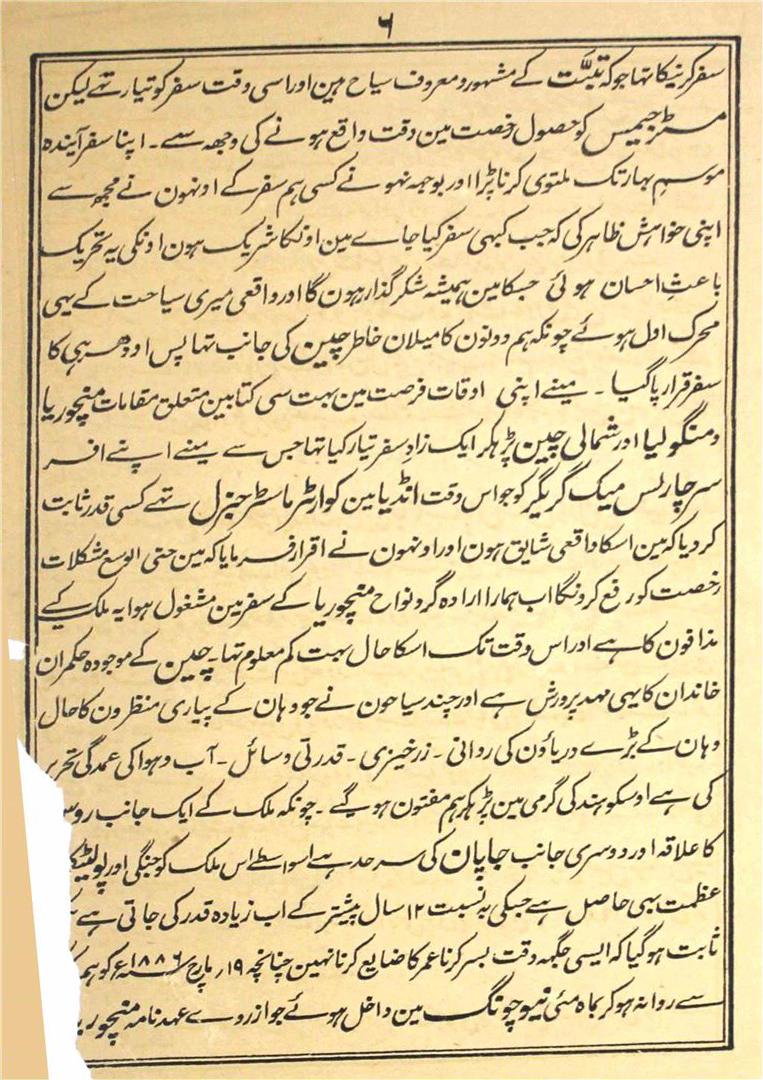 ۶
سفر کرنیکا تہا جو کہ تبت کے مشہور و معروف سیاح ہین اور اسی وقت سفر کو تیار تہے لیکن
مسٹر جیمس کو حصول رخصت مین دقت واقع ہونے کی وجہہ سے ۔ اپنا سفر آیندہ
موسم بہار تک ملتوی کرنا پڑا اور بوجہہ نہونے کسی ہم سفر کے اونہون نے مجھ سے
اپنی خواہش ظاہر کی کہ جب کبہی سفر کیا جاے مین اونکا شریک ہون اونکی یہ تحریک
باعثِ احسان ہوئی جسکا مین ہمیشہ شکر گذار ہون گا اور واقعی میری سیاحت کے یہی
محرک اول ہوئے چونکہ ہم دونون کا میلان خاطر چین کی جانب تہا پس اودہر ہی کا
سفر قرار پا گیا ۔ مینے اپنی اوقات فرصت مین بہت سی کتابین متعلق مقامات منچوریا
و منگولیا اور شمالی چین پڑہکر ایک زادِ سفر تیار کیا تہا جس سے مینے اپنے افسر
سر چارلس میک گریگر کو جو اس وقت انڈیا مین کوارٹر ماسٹر جنرل تہے کسی قدر ثابت
کر دیا کہ مین اسکا واقعی شایق ہون اور اونہون نے اقرار فرمایا کہ مین حتی الوسع مشکلات
رخصت کو رفع کرونگا اب ہمارا ارادہ گرد نواح منچوریا کے سفر مین مشغول ہوا یہ ملک کے
مذاقون کا ہے اور اس وقت تک اسکا حال بہت کم معلوم تہا ۔ چین کے موجودہ حکمران
خاندان کا یہی مہد پرورش ہے اور چند سیاحون نے جو وہان کے پیاری منظرون کا حال
وہان کے بڑے دریاؤن کی روانی ۔ زرخیزی ۔ قدرتی وسائل ۔ آب و ہوا کی عمدگی تحریر
کی ہے اوسکو ہند کی گرمی مین پڑہکر ہم مفتون ہوگیے ۔ چونکہ ملک کے ایک جانب روس
کا علاقہ اور دوسری جانب جاپان کی سرحد ہے اسواسطے اس ملک کو جنگی اور پولیٹیکل
عظمت بہی حاصل ہے جسکی بہ نسبت ۱۲ سال پیشتر کے اب زیادہ قدر کی جاتی ہے
ثابت ہو گیا کہ ایسی جگہہ وقت بسر کرنا عمر کا ضایع کرنا نہین چنانچہ ۱۹؍ مارچ ۱۸۸۶ع کو ہم
سے روانہ ہو کر بماہ مئی نیوچوانگ مین داخل ہوئے جو ازروے عہدنامہ منچوریا